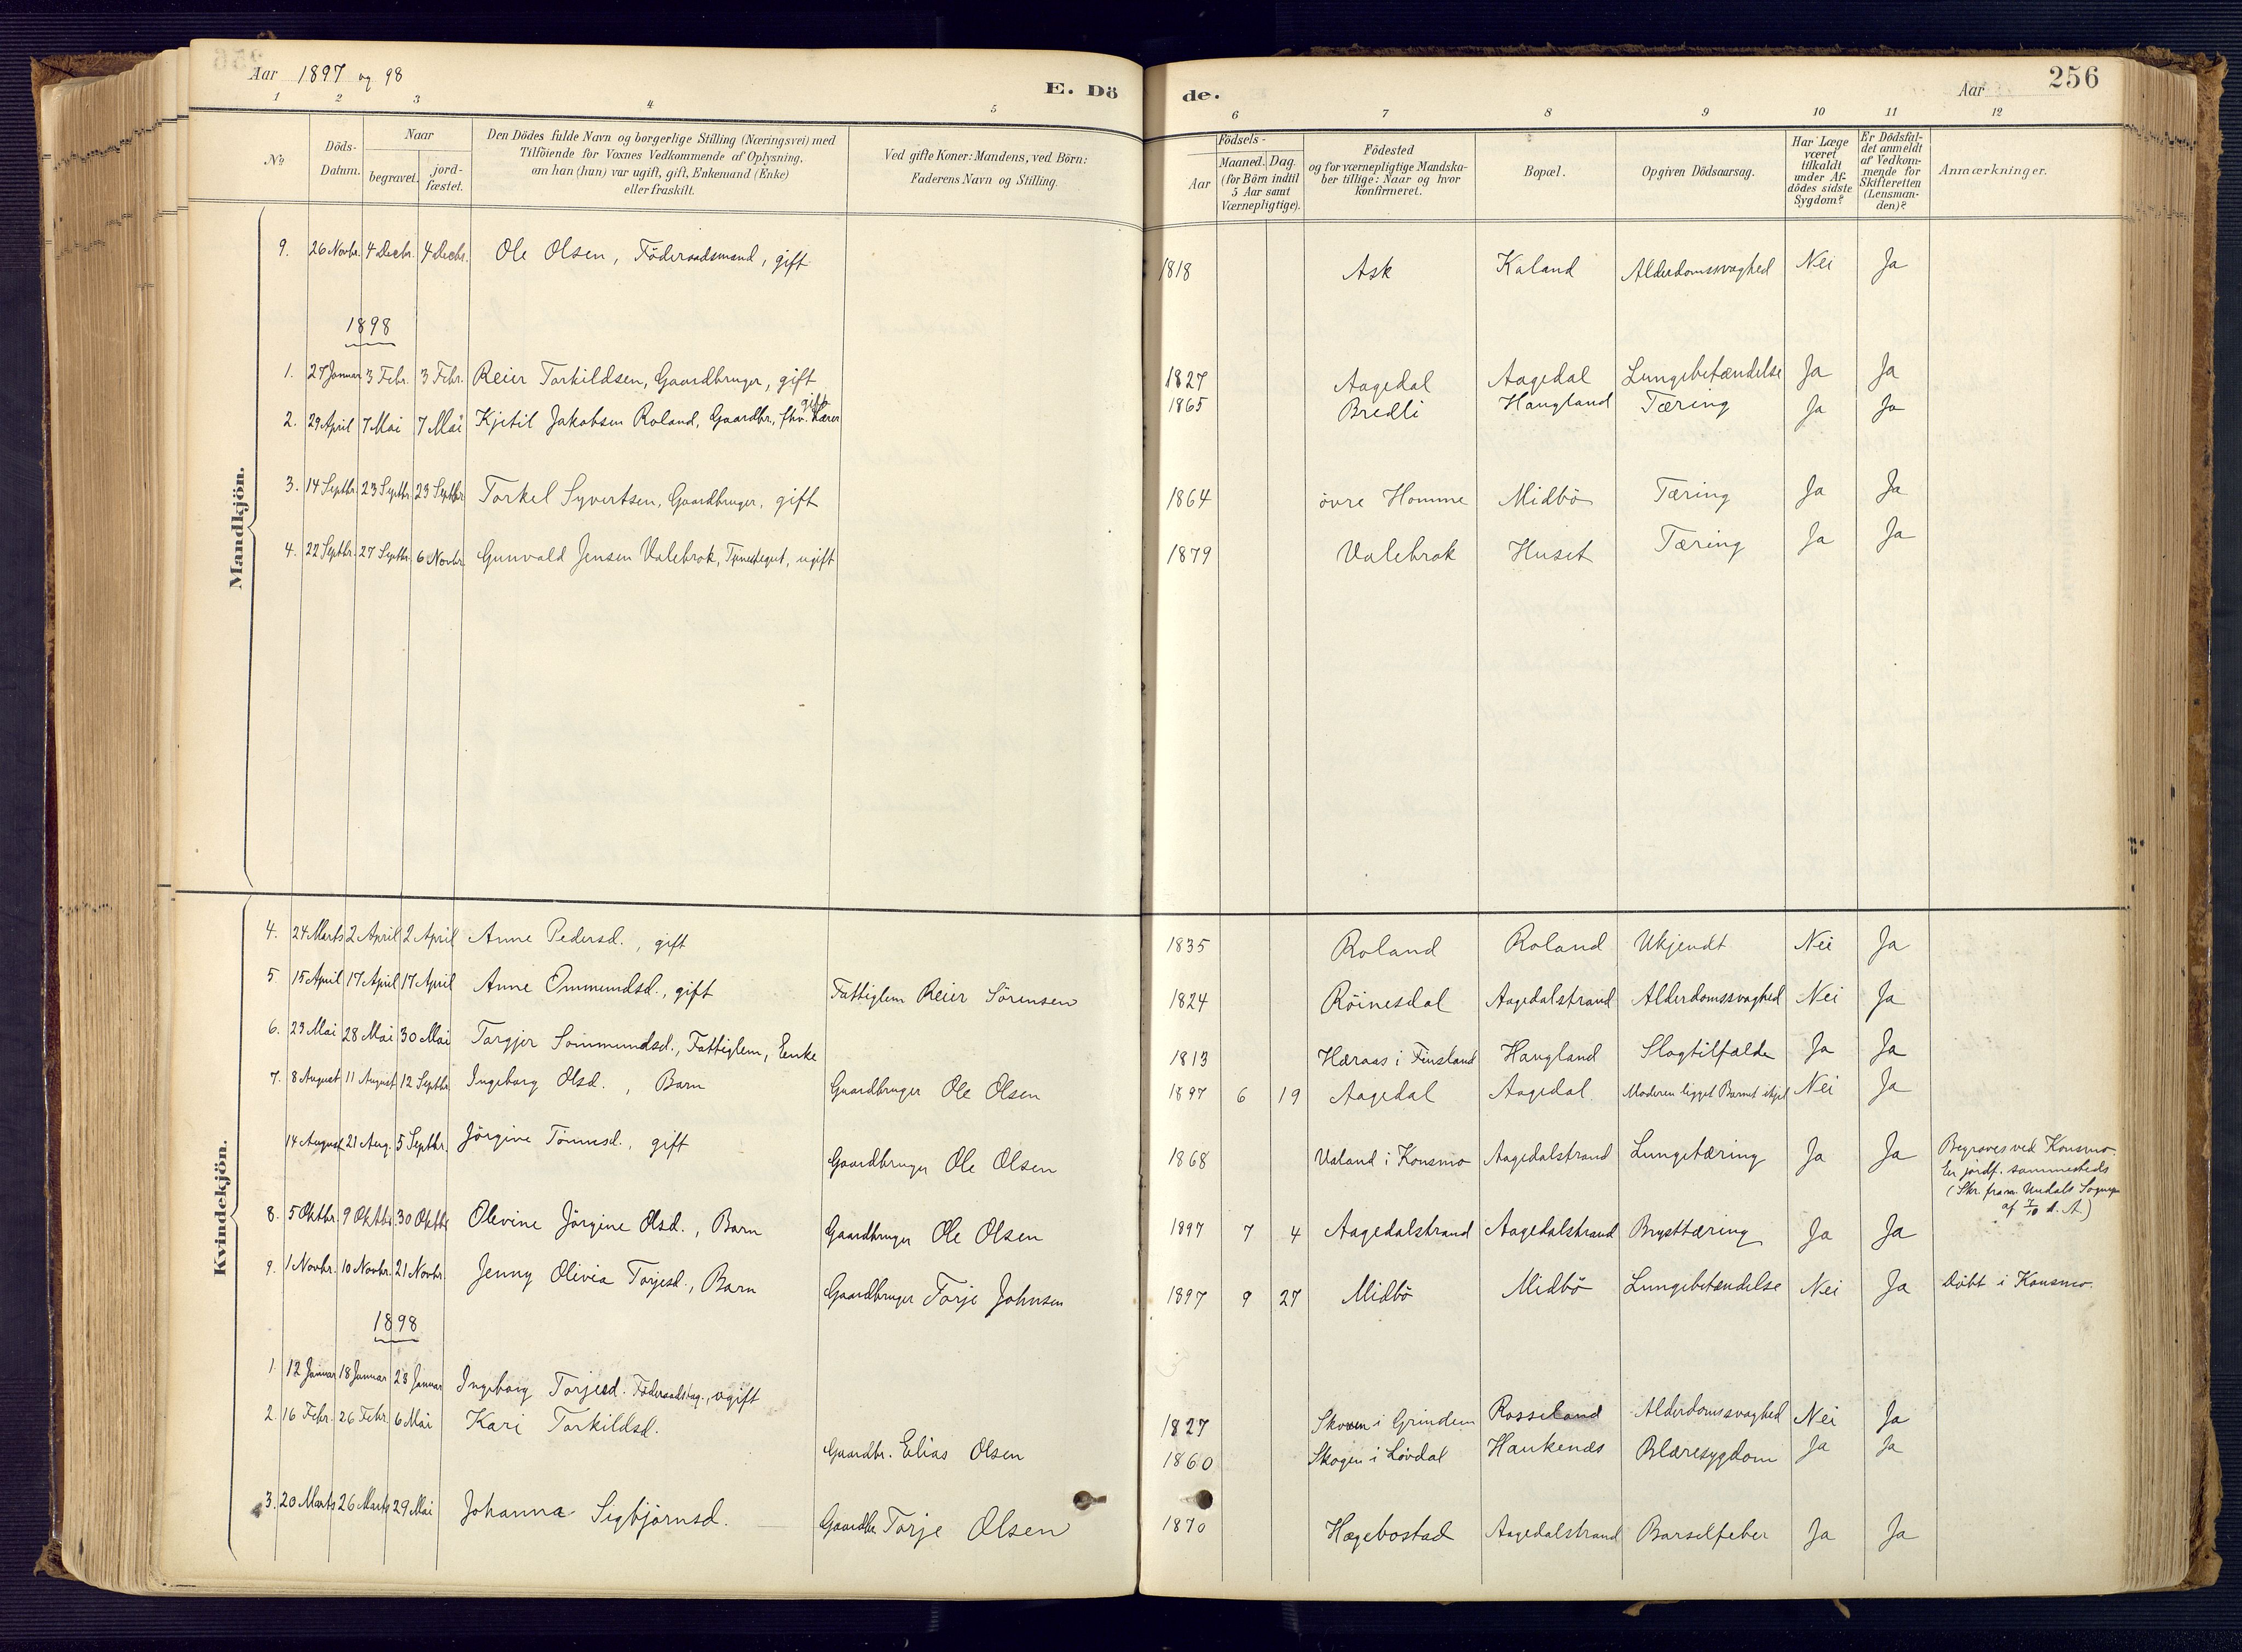 Aar 1897 og 98
E. Dö
de.
Aar
256
1 2 3 4 5 6 7 8 9 10 11 12
No
Döds-Datum.
Naar
begravet.
jord-fæstet.
Den Dödes fulde Navn og borgerlige Stilling (Næringsvei) med
Tilföiende for Voxnes Vedkommende af Oplysning,
om han (hun) var ugift, gift, Enkemand (Enke)
eller fraskilt.
Ved gifte Koner: Mandens, ved Börn:
Faderens Navn og Stilling.
Födsels-
Aar
Maaned. Dag.
(for Börn indtil
5 Aar samt
Værnepligtige).
Födested
og for værnepligtige Mandska-
ber tillige: Naar og hvor
konfirmeret.
Bopæl.
Opgiven Dödsaarsag.
Har Læge
været
tilkaldt
under Af-
dödes sidste
Sygdom?
Er Dödsfal-
det anmeldt
af Vedkom-
mende for
Skifteretten
(Lensman-
den)?
Anmærkninger.
Mandkjön.
9. 26 Novbr. 4 Decbr. 4 Decbr. Ole Olsen, Föderaadsmand, gift 1818 Ask Kaland Alderdomssvaghed Nei Ja
1898
1. 27 Januar 3 Febr. 3 Febr. Reier Torkildsen, Gaardbruger, gift 1827 Aagedal Aagedal Lungebetændelse Ja Ja
2. 29 April 7 Mai 7 Mai Kjetil Jakobsen Roland, Gaardbr., fhv. Lærer gift 1865 Bredli Haugland Tæring Ja Ja
3. 14 Septbr. 23 Septbr. 23 Septbr. Torkel Syvertsen, Gaardbruger, gift 1864 övre Homme Midbö Tæring Ja Ja
4. 22 Septbr. 27 Septbr. 6 Novbr. Gunvald Jensen Valebrok, Tjenestegut, ugift 1879 Valebrok Huset Tæring Ja Ja
Kvindekjön.
4. 24 Marts 2 April 2 April Anne Pedersd., gift 1835 Roland Roland Ukjendt Nei Ja
5. 15 April 17 April 17 April Anne Ommundsd., gift Fattiglem Reier Sörensen 1824 Röinesdal Aagedalstrand Alderdomssvaghed Nei Ja
6. 23 Mai 28 Mai 30 Mai Targjer Sommundsd., Fattiglem, Enke 1813 Hæraas i Finsland Haugland Slagtilfælde Ja Ja
7. 8 August 11 August 12 Septbr. Ingeborg Olsd., Barn Gaardbruger Ole Olsen 1897 6 19 Aagedal Aagedal Moderen ligget Barnet ihjel Nei Ja
14 August 21 Aug. 5 Septbr. Jörgine Tönnesd., gift Gaardbruger Ole Olsen 1868 Valand i Konsmo Aagedalstrand Lungetæring Ja Ja Begraves ved Konsmo
Er jordf. sammesteds
(Skr. fra Undals Sognep
af 7/10 d. A.)
8. 5 Oktbr. 9 Oktbr. 30 Oktbr. Olevine Jörgine Olsd., Barn Gaardbruger Ole Olsen 1897 7 4 Aagedalstrand Aagedalstrand Brysttæring Ja Ja
9. 1 Novbr. 10 Novbr. 21 Novbr. Jenny Olivia Torjesd., Barn Gaardbruger Torje Johnsen 1897 9 27 Midbö Midbö Lungebetændelse Nei Ja Döbt i Konsmo.
1898
1. 12 Januar 18 Januar 28 Januar Ingeborg Torjesd. Föderaadstag., ugift 1827 Skoven i Grindem Rosseland Alderdomssvaghed Nei Ja
2. 16 Febr. 26 Febr. 6 Mai Kari Torkildsd. Gaardbr. Elias Olsen 1860 Skogen i Lövdal Haukenæs Blæresygdom Ja Ja
3. 20 Marts 26 Marts 29 Mai Johanna Sigbjörnsd. Gaardbr. Torje Olsen 1870 Hægebostad Aagedalstrand Barselfeber Ja Ja